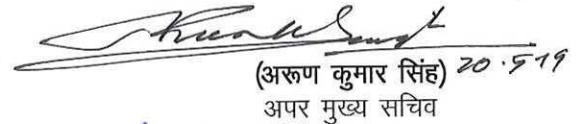 (अरूण कुमार सिंह) 20.9.19
अपर मुख्य सचिव